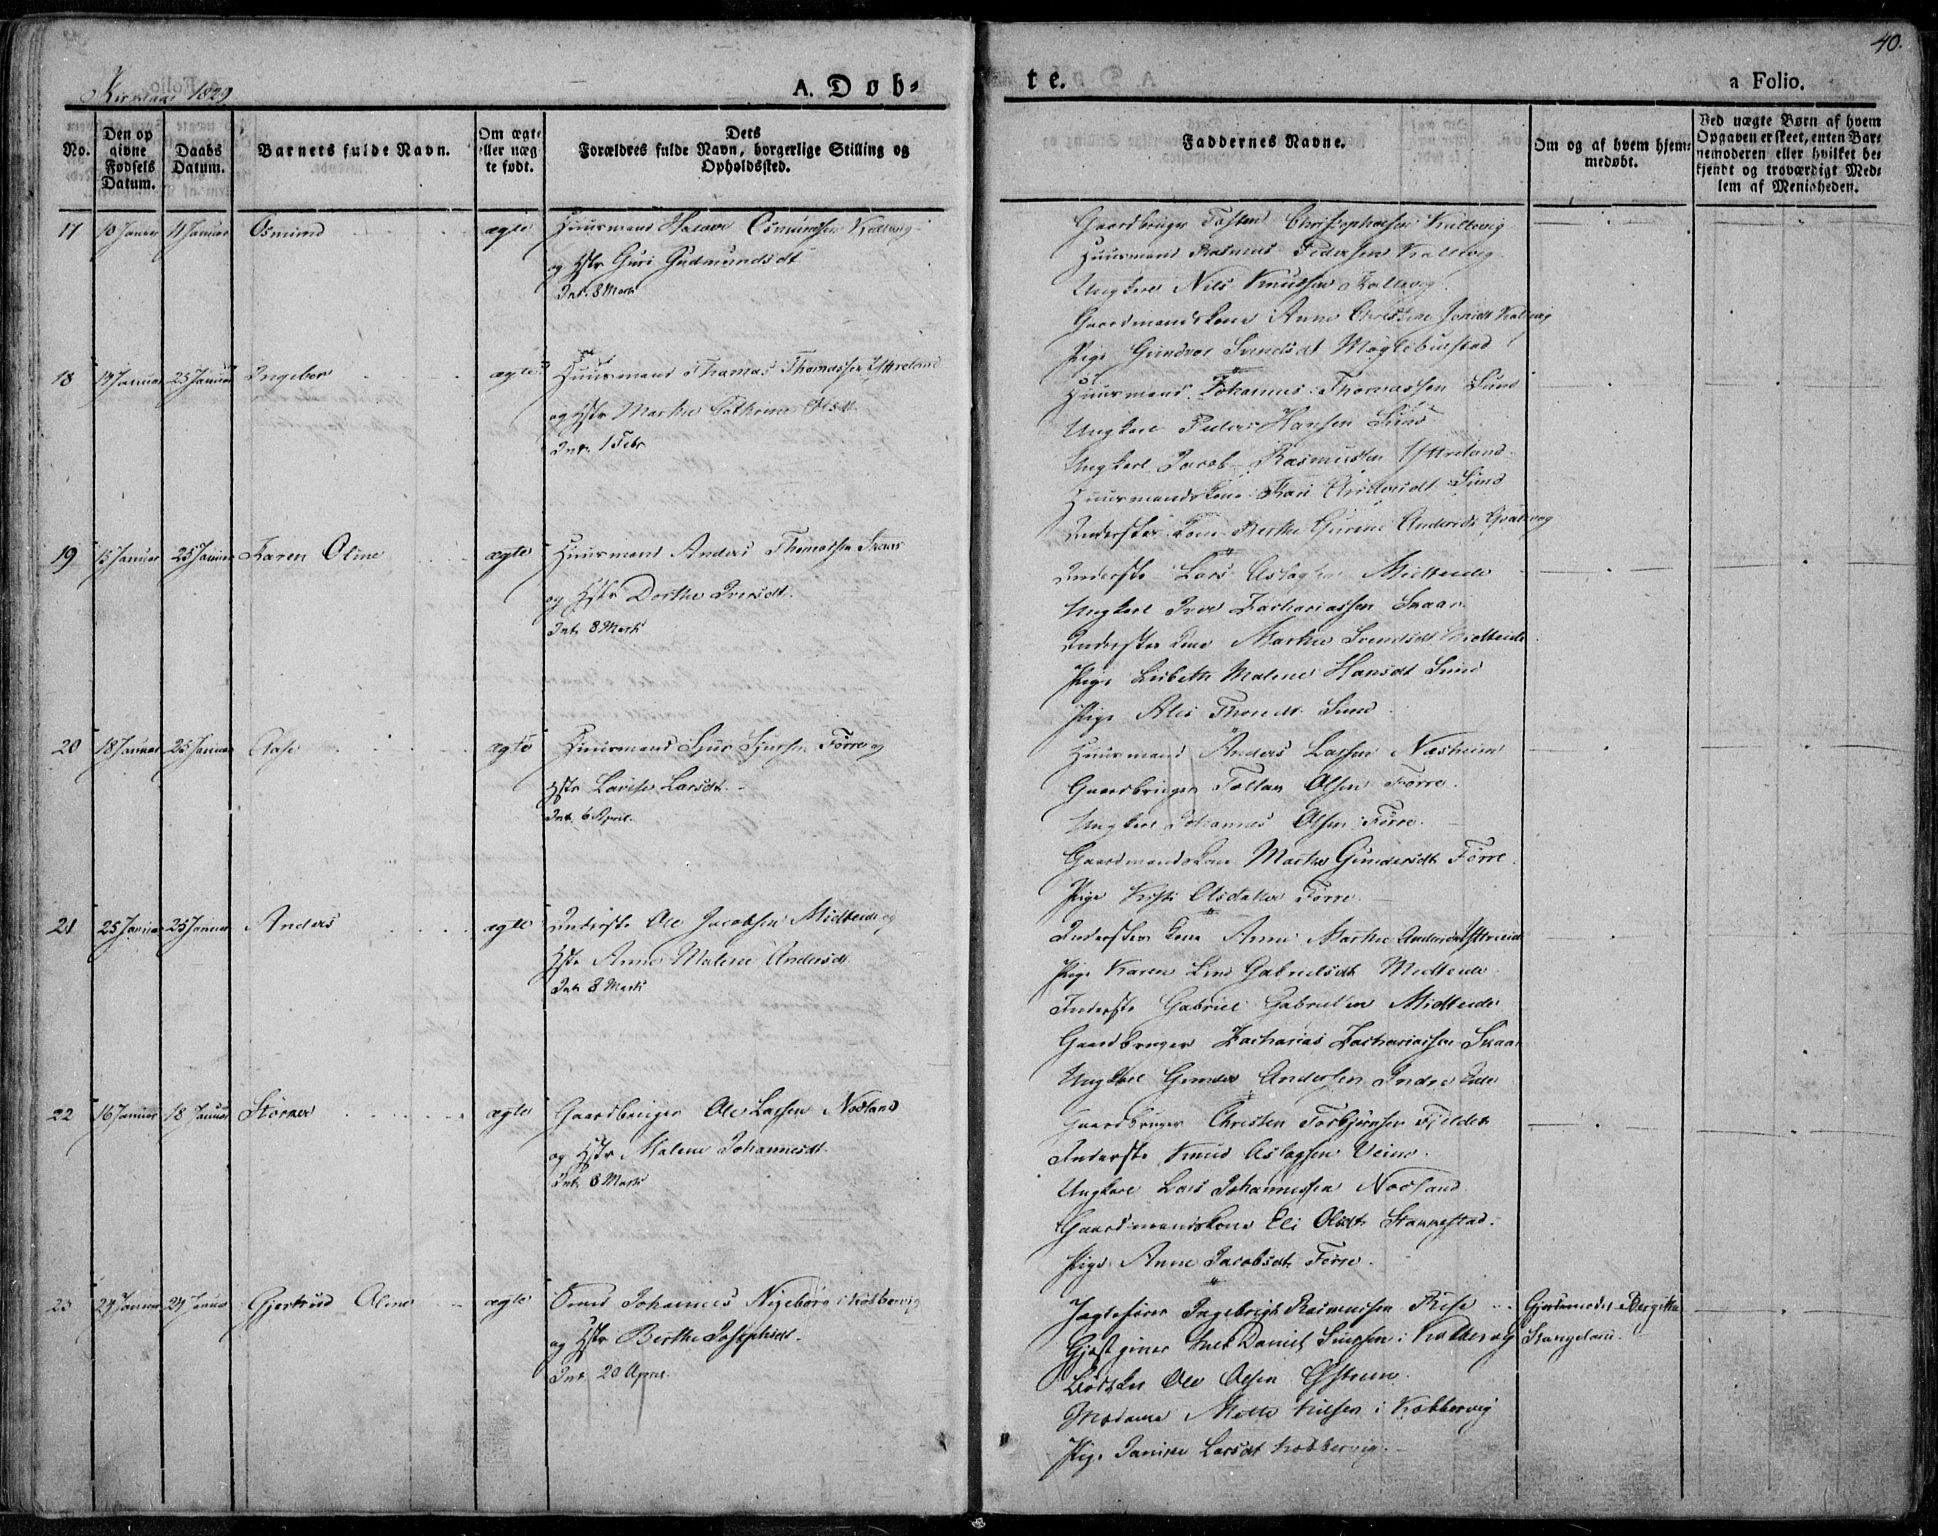 40.
Kirkeaar 1829
A. Døb-
te.
a Folio.
No.
Den opgivne Fødsels Datum.
Daabs Datum.
Barnets fulde Navn.
Om ægte eller nægte født.
Dets Forældres fulde Navn, borgerlige Stilling og Opholdssted.
Faddernes Navne.
Om og af hvem hjemmedøbt.
Ved uægte Børn af hvem Opgaven er skeet, enten Barnemoderen eller hvilket bekjendt og troværdigt Medlem af Menigheden.
17 10 Januar 11 Januar Osmund ægte Huusmand Halvor Osmundsen Kallevig
og Hstr Guri Gudmundsdt
Int. 8 Marts
Gaardbruger Tosten Christophersen Kallevig
Huusmand Rasmus Pedersen Kallevig
Ungkarl Nils Knudsen Kallevig
Gaardmandskone Anne Christine Jonsdt Kallevig
Pige Gundvor Svendsdt Møglebustad
18 19 Januar 25 Januar Ingebor ægte Huusmand Thomas Thomassen Yttreland
og Hstr Marthe Cathrine Olsdt
Int. 1 Febr
Huusmand Johannes Thomassen Sund
Ungkarl Peder Hansen Sund
Ungkarl Jacob Rasmussen Yttreland
Huusmandskone Kari Andersdt Sund
Inderstes Kone Berthe Gurine Andersdt
19 15 Januar 25 Januar Karen Oline ægte Huusmand Anders Thomassen Snaar
og Hstr Dorthe Iversdt
Int. 8 Marts
Inderste Lars Aslagsen Midteide
Ungkarl Iver Zachariassen Snaar
Inderstes Kone Marthe Svendsdt Midteide
Pige Lisbeth Malene Hansdt Sund
Pige Alis Thorsdt Sund
20 18 Januar 25 Januar Aase ægte Huusmand Sjur Sjursen Førre og
Hstr Lavise Larsdt
Int. 6 April
Huusmand Anders Larsen Næsheim
Gaardbruger Toltan Olsen Førre
Ungkarl Johannes Olsen Førre
Gaardmandskone Marthe Gundersdt Førre
Pige Kirsti Olsdatter Førre
21 25 Januar 25 Januar Anders ægte Inderste Ole Jacobsen Midteide og
Hstr Anne Malene Andersdt
Int. 8 Marts
Inderstes Kone Anne Marthe Andersdt Yttreeide
Pige Karen Lene Gabrielsdt Midteide
Inderste Gabriel Gabrielsen Midteide
Gaardbruger Zacharias Zachariassen Snaar
Ungkarl Gunder Andersen Indre Eide
22 16 Januar 18 Januar Størker ægte Gaardbruger Ole Larsen Nodland
og Hstr Malene Johannesdt
Int. 8 Marts
Gaardbruger Christen Torbjørnsen Fjeldet
Inderste Knud Aslagsen Veim
Ungkarl Lars Johannessen Nodland
Gaardmandskone Eli Olsdt Stakkestad
Pige Anne Jacobsdt Førre
23 24 Januar 24 Januar Gjertrud Oline ægte Smed Johannes Nigeborg i Kobbervig
og Hstr Berthe Josephsdt
Int. 20 April
Jagtefører Ingebrigt Rasmussen Risø
Gjæstgiver Daniel i Kobbervig
Bødker Ole Olsen Østrem
Madame Mette Nilsen i Kobbervig
Pige Janike Larsdt Kobbervig
Gjordemoder Bergitte
Stangeland